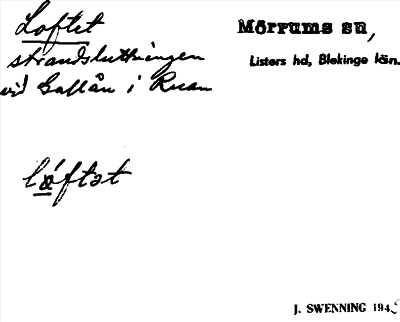 Loftet
Mörrums sn,
strandsluttningen
Listers hd, Blekinge län.
vid Gallån i Ruan
lo̱´ftət
J. SWENNING 194